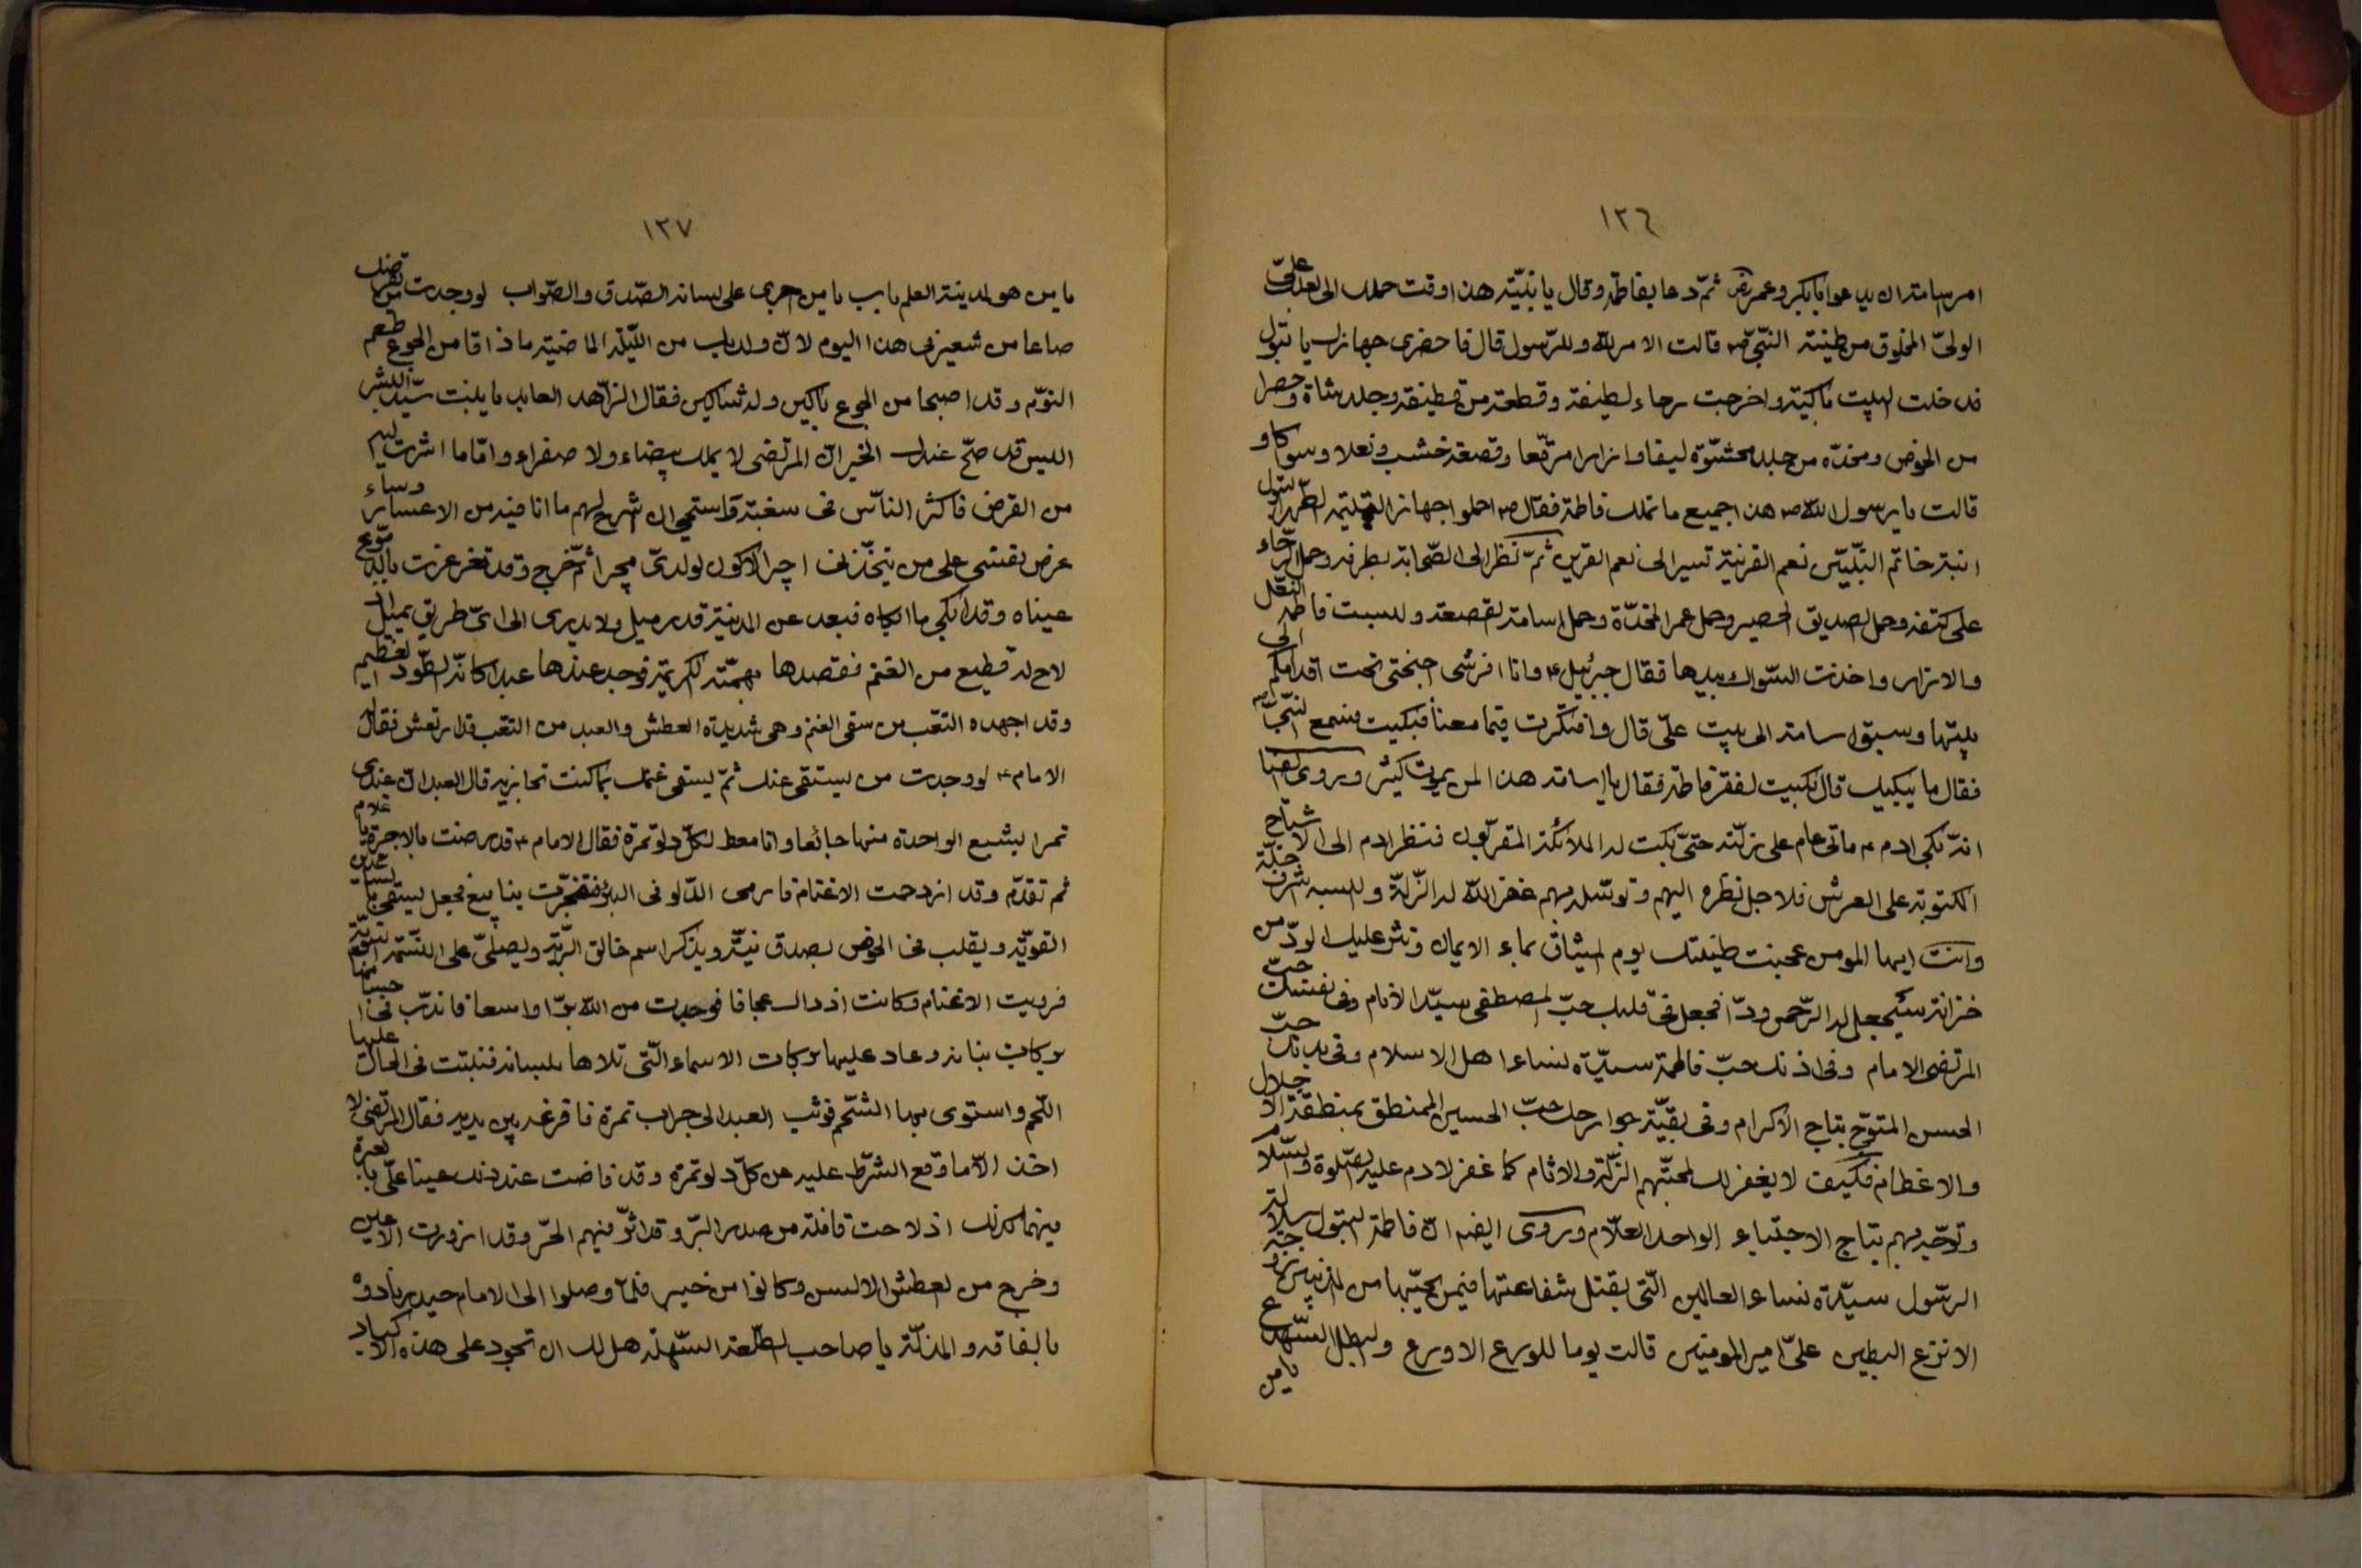 ١٢٦
امر اسامة ان يدعو ابا بكر وعمر رض ثمّ دعا بفاطمة وقال يا بنيّة هذا وقت حملك الى بعلك عليّ
الوليّ المخلوق من طينة النبيّ ص قالت الامر للّه وللرّسول قال فاحضرى جهازك يا بتول
فدخلت البيت باكية واخرجت رحاء لطيفة وقطعة من قطيفة وجلد شاة وحصرا
من الخوص ومخدّه من جلد محشوّة ليفا وازارا مرقّعا وقصعة خشب ونعلا وسواكا و
قالت يا رسول اللّه ص هذا جميع ما تملك فاطمة فقال ص احملوا جهاز اليتيمة الطّهر البتول
ابنة خاتم النّبيّين نعم القرينة تسير الى نعم القرين ثمّ نظر الى الصّحابة بطرفه وحمل الرّحاء
على كتفه وحمل الصديق الحصير وحمل عمر المخدّة وحمل اسامة القصعة ولبست فاطمة النّعل
والازار واخذت السّواك بيدها فقال جبرئيل ع وانا افرشى اجنحتى تحت اقدامكم الى
بيتها وسبق اسامة الى بيت علىّ قال وافتكرت فيما معنا فبكيت فسمع النّبىّ ص
فقال ما يبكيك قال بكيت لفقر فاطمة فقال يا اسامة هذا لمن يموت كثير ويروى ايضا
انّه بكى ادم ع ماتى عام على زلّته حتّى بكت له الملائكة المقرّبون فنظر ادم الى الاشباح
المكتوبة على العرش فلاجل نظره اليهم وتوسّله بهم غفر اللّه له الزّلّة والبسه شرف خلّة
وانت ايها المومن عجنت طينتك يوم الميثاق بماء الايمان ونثر عليك الودّ من
خزانة سيجعل لهم الرّحمن ودّا فجعل فى قلبك حبّ المصطفى سيّد الانام وفى نفسك حبّ
المرتضى الامام وفى اذنك حبّ فاطمة سيّدة نساء اهل الاسلام وفى يدك حبّ
الحسن المتوّج بتاج الاكرام وفى بقيّة جوارحك حبّ الحسين الممنطق بمنطقة الاجلال
والاعظام فكيف لا يغفر لك لمحبّتهم الزّلّة والاثام كما غفر لادم عليه الصّلوة والسّلام
وتوجّه بهم بتاج الاجتباء الواحد العلّام ويروى ايضا انّ فاطمة البتول سلالة
الرّسول سيّدة نساء العالمين الّتى يقبل شفاعتها فيمن يحبّها من المذنبين زوجة
الانزع البطين علىّ امير المومنين قالت يوما للورع الاورع والبطل السّميدع
يا من
١٢٧
يا من هو لمدينة العلم باب يا من اجرى على لسانه الصّدق والصّواب لو وجدت من يقرضك
صاعا من شعير فى هذا اليوم لانّ ولديك من اللّيلة الماضية ما ذاقا من الجوع طعم
النّوم وقد اصبحا من الجوع باكين وله شاكين فقال الزّاهد العابد يا بنت سيّد البشر
اليس قد صحّ عندك الخبر انّ المرتضى لا يملك بيضاء ولا صفراء وامّا ما اشرت اليه
من القرض فاكثر النّاس فى سغبة واستحى ان اشرح لهم ما انا فيه من الاعسار وساء
عرض نفسى على من يتخذنى اجيرا لاكون لولدىّ مجيرا ثمّ خرج وقد تغرغرت بالدّموع
عيناه وقد ابكى ما ابكاه فبعد عن المدينة قدر ميل ولا يدرى الى اىّ طريق يميل اذ
لاح له قطيع من الغنم فقصدها بهمّته الكريمة فوجد عندها عبدا كانّه الطّود العظيم
وقد اجهده التّعب من سقى الغنم وهى شديدة العطش والعبد من التّعب قد ارتعش فقال له
الامام ع لو وجدت من يستقى عنك ثمّ يسقى غنمك بما كنت تجازيه قال العبد انّ عندى
تمرا يشبع الواحدة منها جائعا وانا معط لكلّ دلو تمرة فقال الامام ع قد رضيت بالاجرة يا غلام
ثم تقدّم وقد ازدحمت الاغنام فارمى الدّلو فى البئر فتفجّرت ينابيع فجعل يستقى بيده
القويّة ويقلب فى الحوض بصدق نيّة ويذكر اسم خالق البّريّة ويصلّى على النّسمة
فرويت الاغنام وكانت اذ ذاك عجافا فوجدت من اللّه برّا واسعا فاندبّ فى اجسامها
بركات بنانه وعاد عليها بركات الاسماء الّتى تلاها بلسانه فنبتت فى الحال عليها
اللّحم واستوى بها الشّحم فوثب العبد الى جراب تمرة فافرغه بين يديه فقال المرتضى لا
اخذ الّا ما وقع الشّرط عليه من كلّ دلو تمرة وقد فاضت عند ذلك عينا علىّ بالعبرة
فبينما كذلك اذ لاحت قافلة من صدر البّر وقد اثّر فيهم الحّر وقد ازورت الاعين
وخرج من العطش الالسن وكانوا من خيبر فلمّا وصلوا الى الامام حيدر نادوه
بالفاقه والمذلّة يا صاحب الطّلعة السّهلة هل لك ان تجود على هذه الاكباد